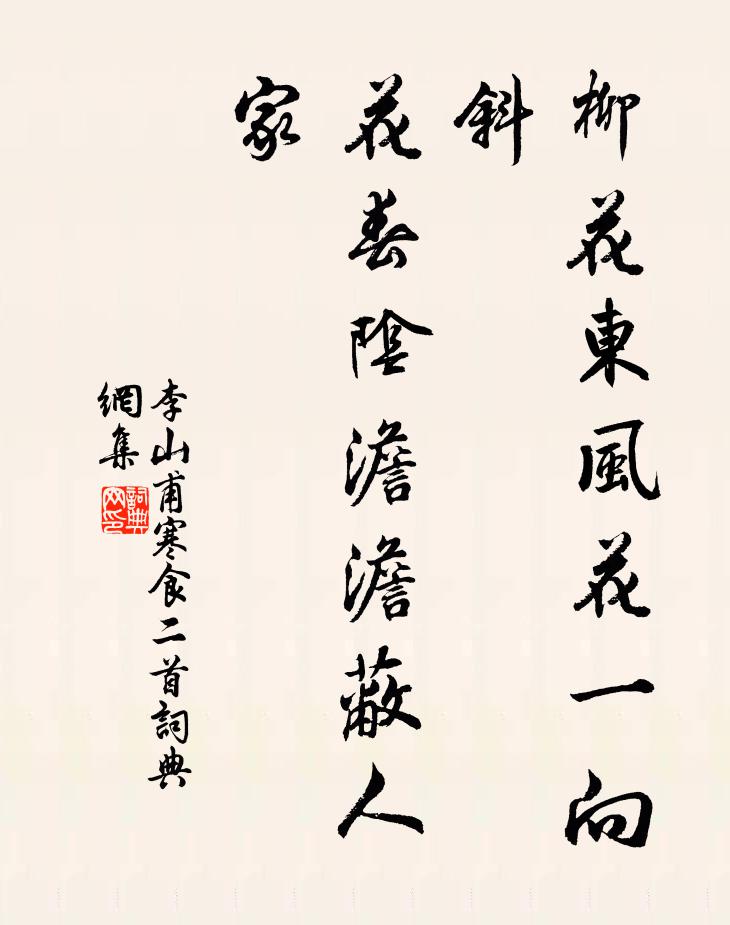 柳花東風花一向
斜
花春陰澹澹蔽人
家
李山甫寒食二首詞典
網集
詞典
网印